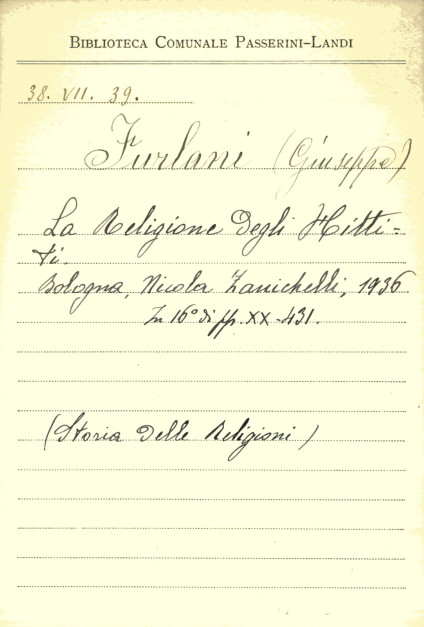 BIBLIOTECA COMUNALE PASSERINI-LANDI
38. VII. 39.
Furlani (Giuseppe)
La Religione degli Hitti=
ti.
Bologna, Nicola Zanichelli, 1936
In 16° di pp. XX-431.
(Storia delle Religioni)